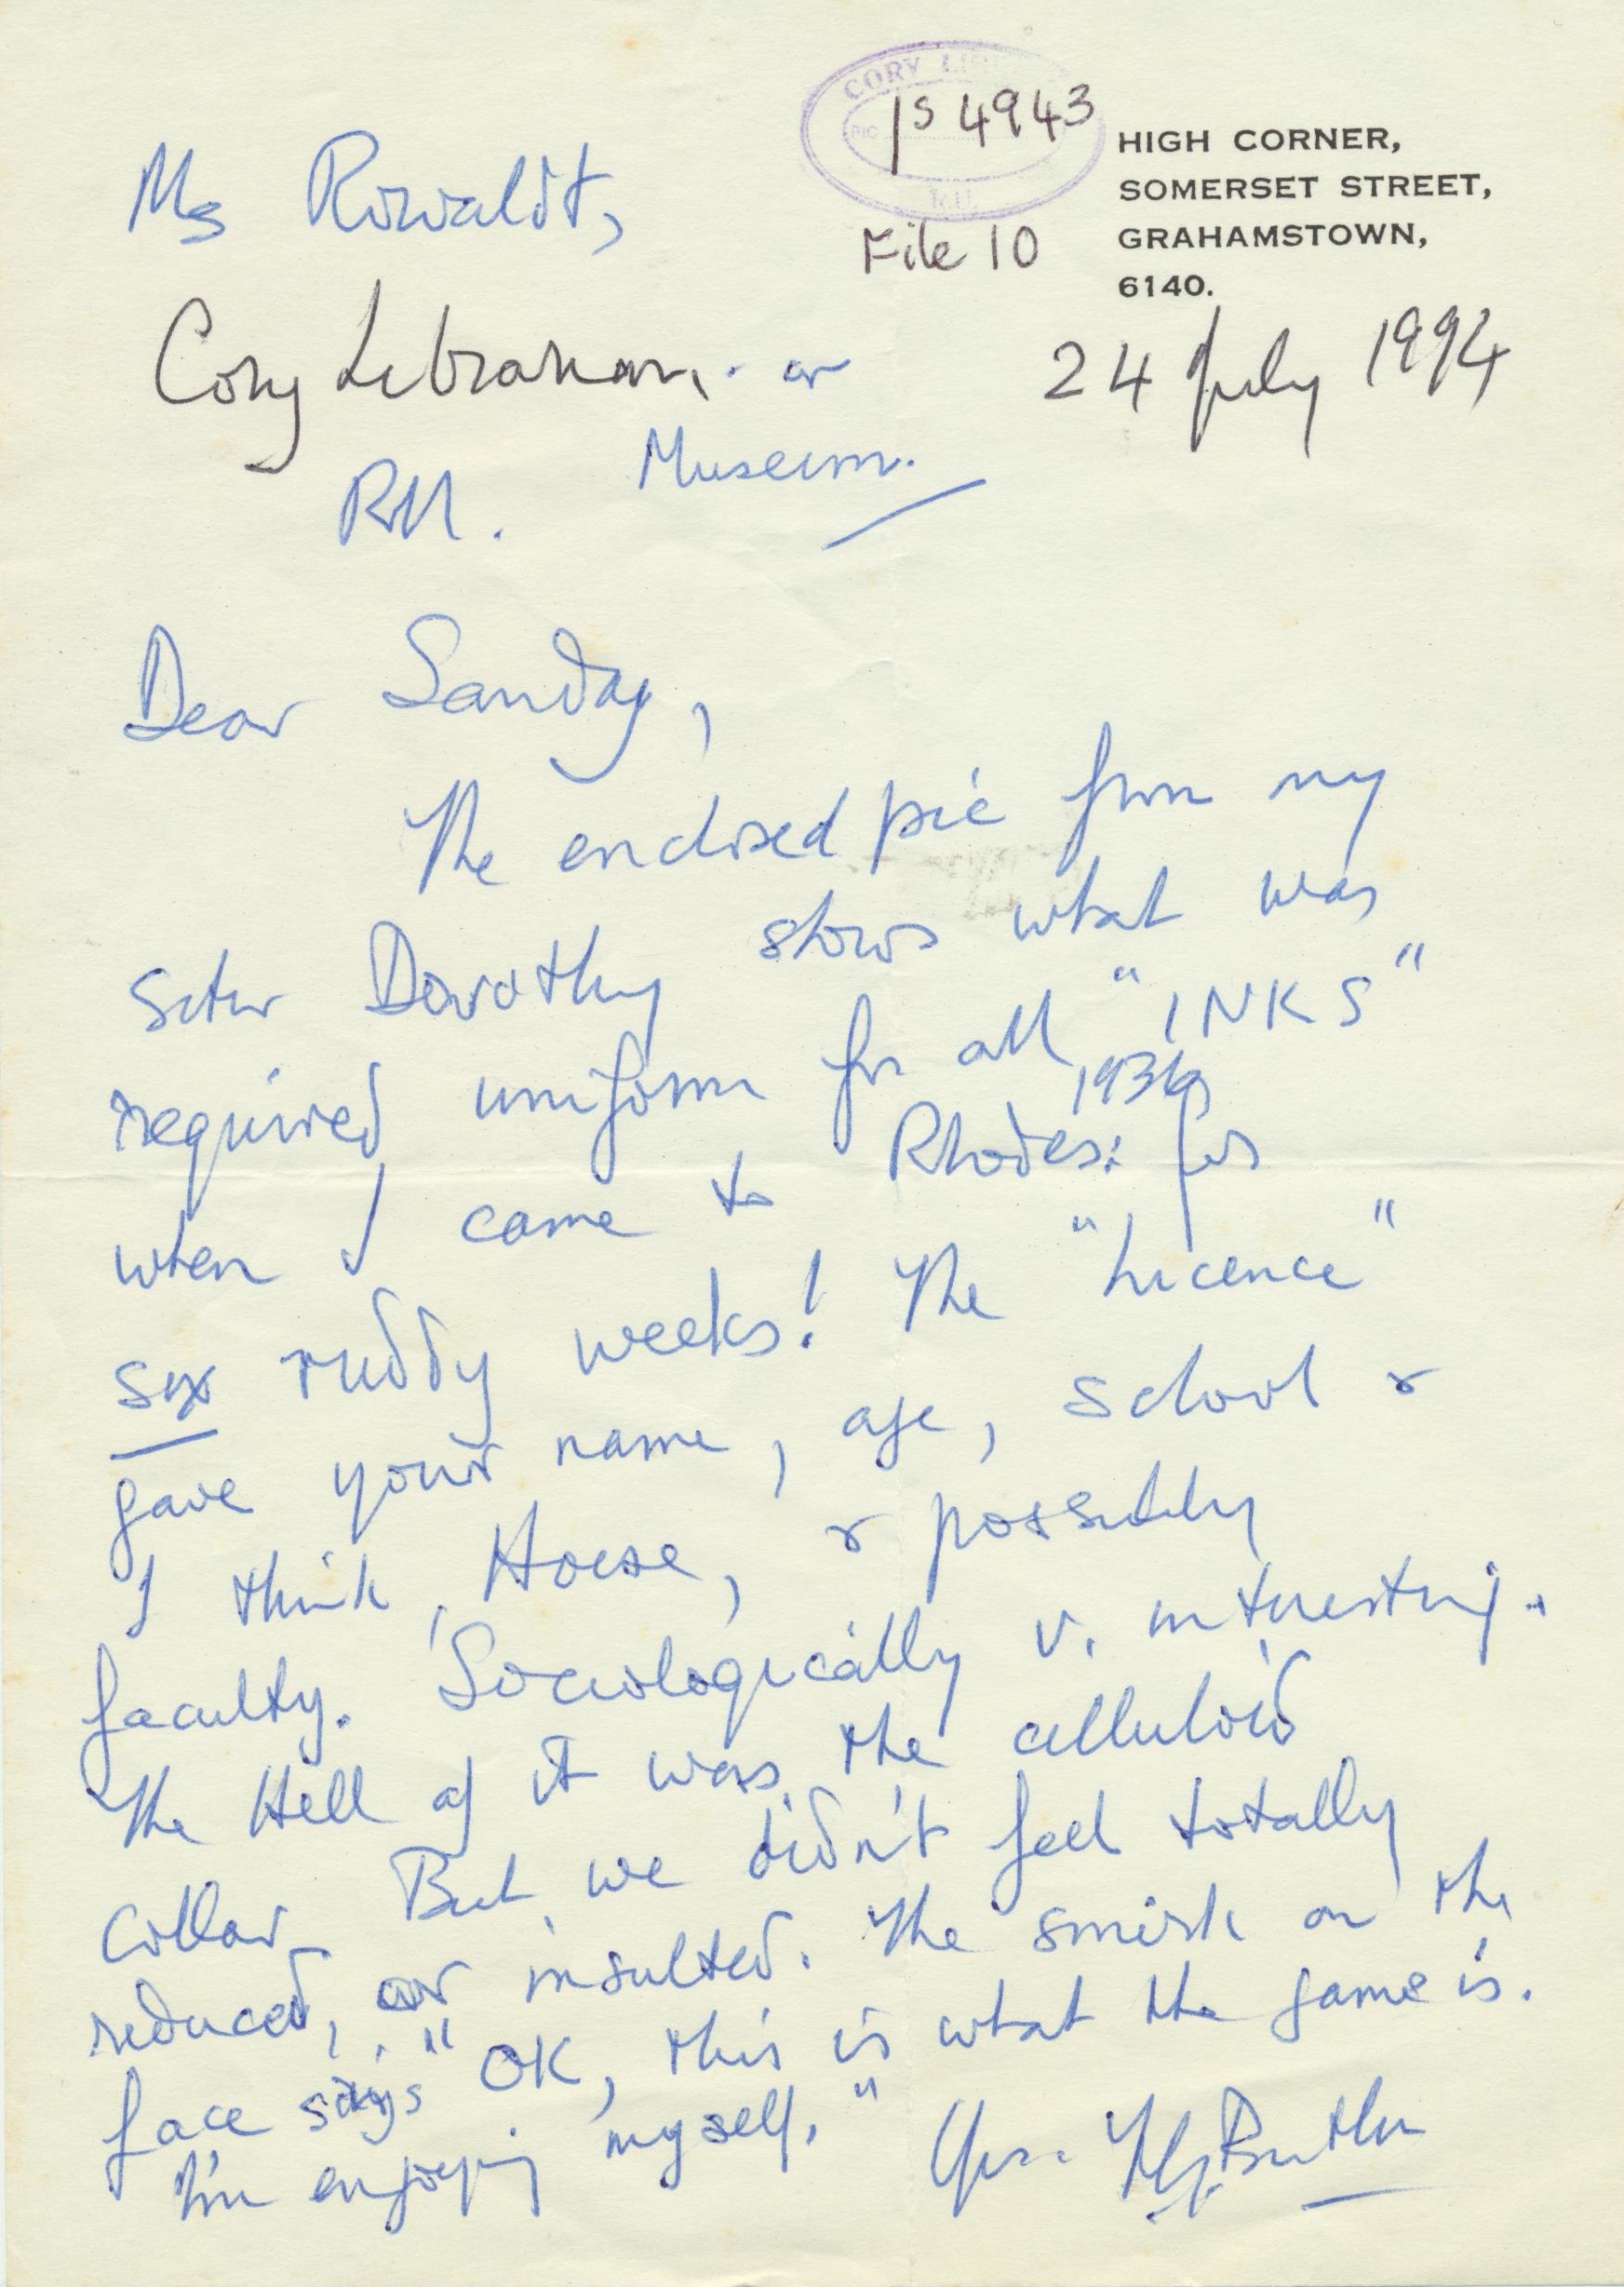 CORY LIBRARY
PIC
PS 4943
R.U.
File 10
HIGH CORNER,
SOMERSET STREET,
GRAHAMSTOWN,
6140.
24 July 1994
Ms Rowoldt,
Cory Librarian. or
Museum.
RU.
Dear Sandy,
The enclosed pic from my
sister Dorothy shows what was
required uniform for all "INKS"
when I came to Rhodes: 1936 for
six ruddy weeks! The "Licence"
gave your name, age, school &
I think, House, & possibly
faculty. Sociologically v. interesting.
The Hell of it was the celluloid
collar. But we didn't feel totally
reduced, or insulted. The smirk on the
face says "OK, this is what the game is.
I'm enjoying myself." Yrs. Butler